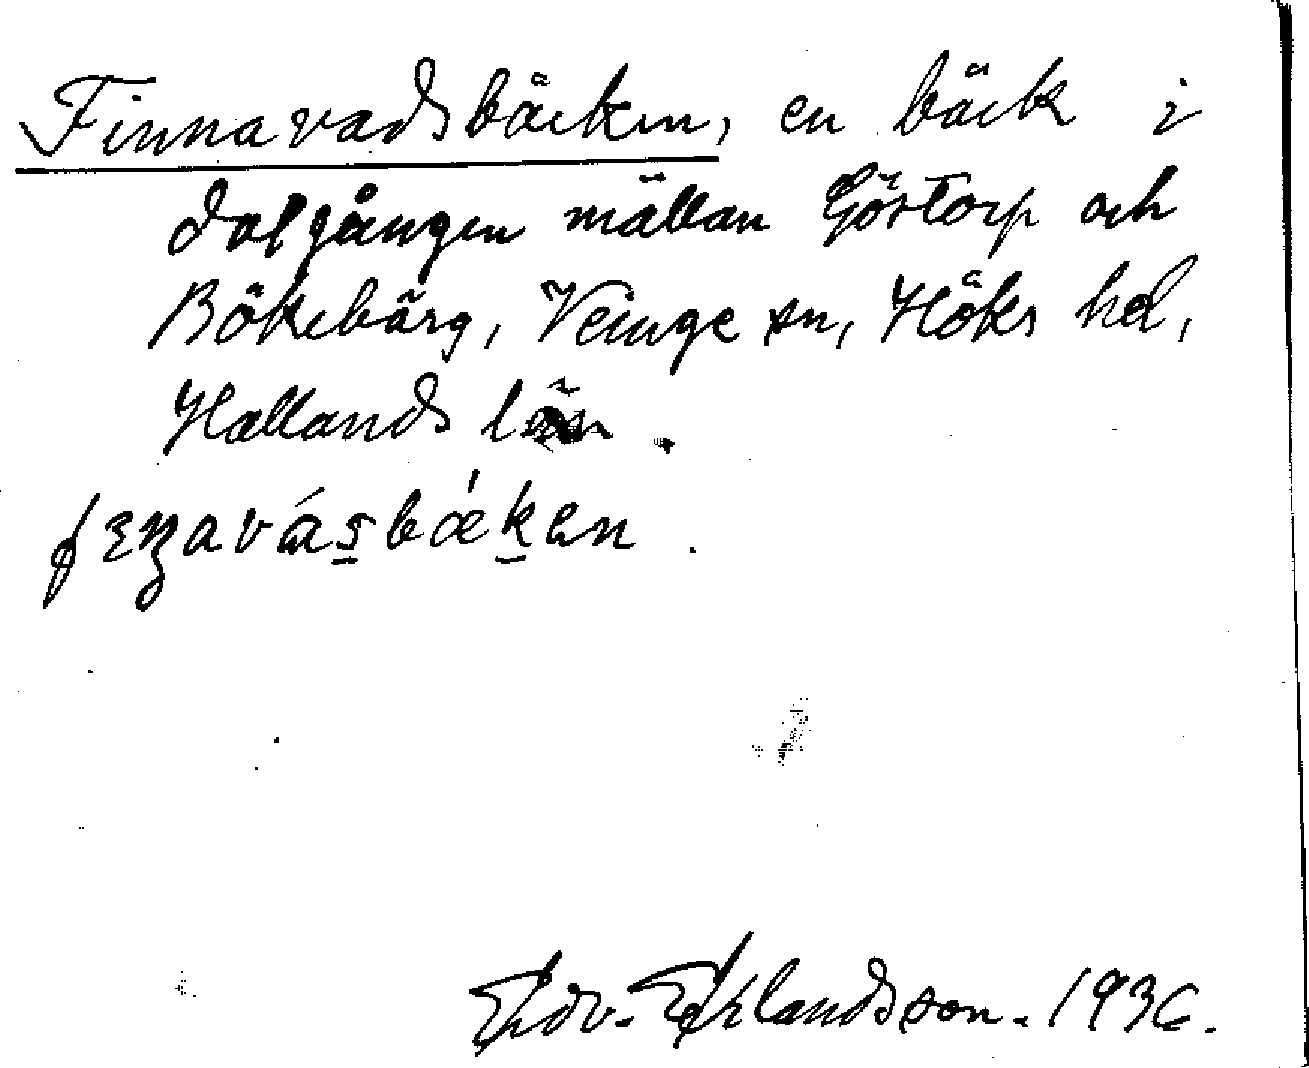 Finnavadsbäcken, en bäck i
dalgången mällan Göstorp och
Bökebärg, Veinge sn, Höks hd,
Hallands län.
fenavásbæken.
Edv. Erlandsson. 1936.